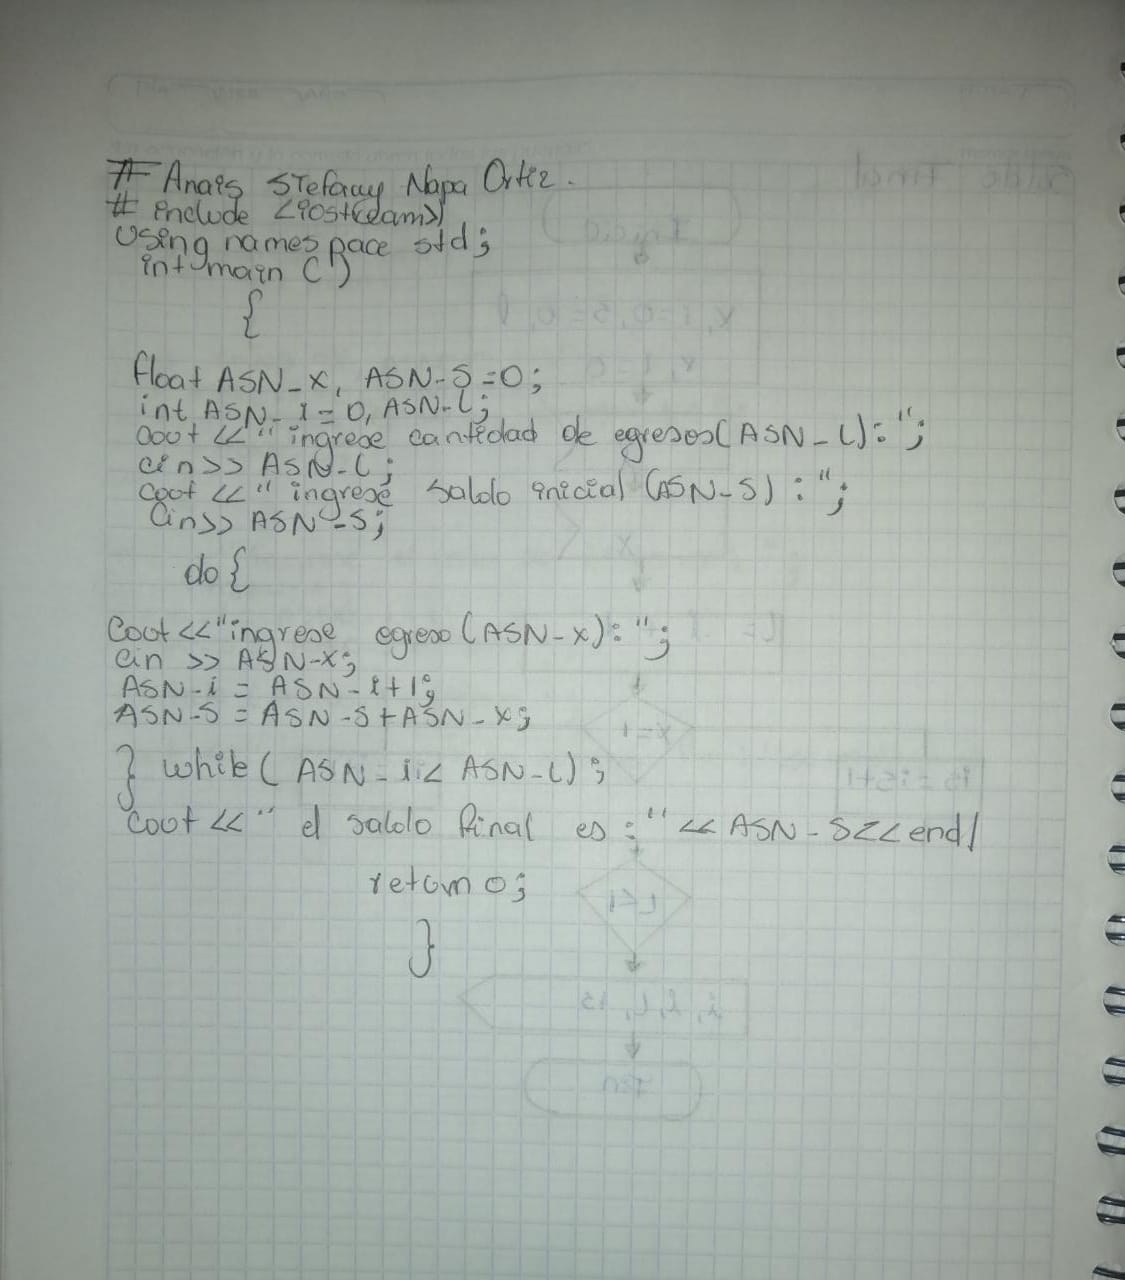 # Anais Stefany Napa Ortiz.
# include <iostream>
Using namespace std;
int main ()
{
float ASN_X, ASN-S=0;
int ASN_i=0, ASN-L;
cout << " ingrese cantidad de egresos(ASN_L):";
cin>> ASN-L;
cout << " ingrese saldo inicial (ASN-S) : ";
cin>> ASN-S;
do {
Cout <<"ingrese egreso (ASN-X): ";
cin >> ASN-X;
ASN-i = ASN-i+1;
ASN-S = ASN-S+ASN-X;
} while ( ASN-i < ASN-L) ;
Cout << " el saldo final es : " << ASN-S<<endl
return 0;
}